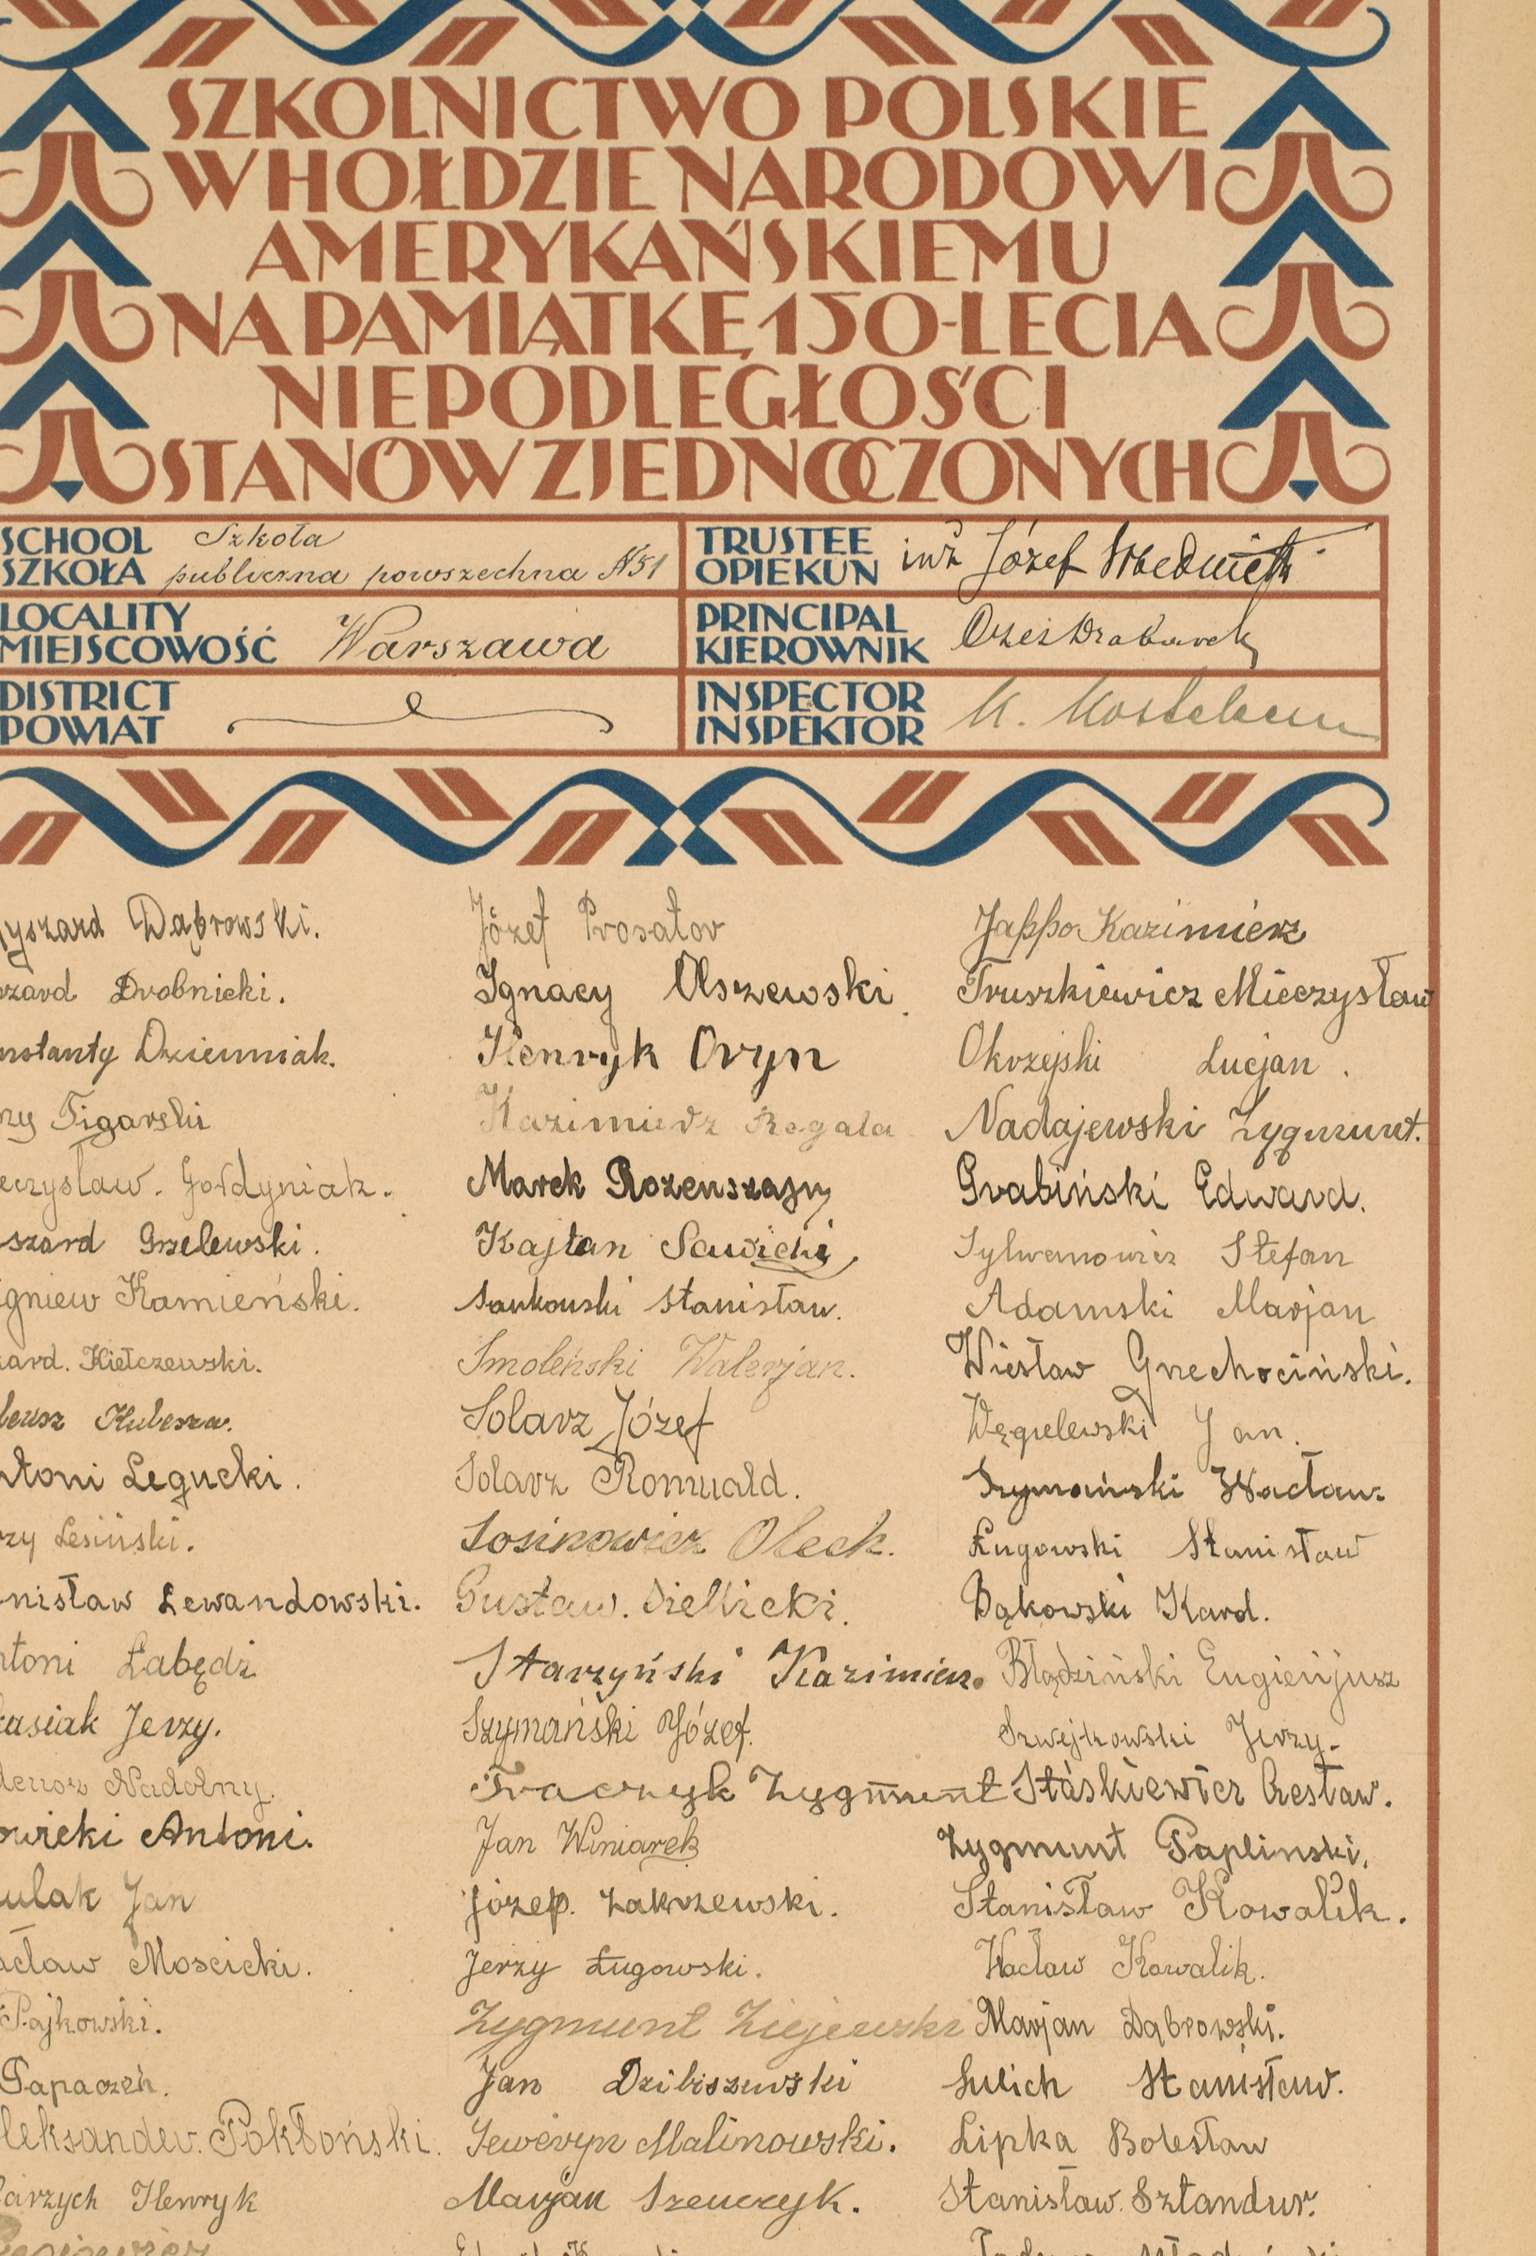 SZKOLNICTWO POLSKIE
W HOŁDZIE NARODOWI
AMERYKAŃSKIEMU
NA PAMIĄTKĘ 150-LECIA
NIEPODLEGŁOŚCI
STANÓW ZJEDNOCZONYCH
SCHOOL
SZKOŁA
Szkoła
publiczna powszechna №51
TRUSTEE
OPIEKUN
inż Józef
LOCALITY
MIEJSCOWOŚĆ
Warszawa
PRINCIPAL
KIEROWNIK
DISTRICT
POWIAT
INSPECTOR
INSPEKTOR
yszard Dąbrowski.
szard Drobnicki.
nstanty Dzienniak.
rzy Figarski
eczysław. Gołdyniak.
szard Grzelewski.
igniew Kamieński.
zard. Kiełczewski.
deusz Kubesza.
ntoni Legucki.
rzy Lesiński.
nisław Lewandowski.
ntoni Łabędź
kasiak Jerzy.
deusz Nadolny.
owicki Antoni.
ulak Jan
acław Moscicki.
Pajkowski.
Papaczek.
leksander. Pokłoński.
larzych Henryk
Józef Prosatov
Ignacy Olszewski.
Henryk Oryn
Kazimierz Rogala
Marek Rozenszajn
Kajtan Sawicki,
Sankowski Stanisław.
Smoleński Walerjan.
Solarz Józef
Solarz Romuald.
Sosinowicz Oleck.
Gustaw. Sielicki.
Starzyński Kazimierz.
Szymański Józef.
Traczyk Zygmunt
Jan Winiarek
Józef. Zakrzewski.
Jerzy Ługowski.
Zygmunt Ziejewski
Jan Dzibiszewski
Seweryn Malinowski.
Marjan Szewczyk.
Jappo Kazimierz
Truszkiewicz Mieczysław
Okrzejski Lucjan.
Nadajewski Zygmunt.
Grabiński Edward.
Sylwanowicz Stefan
Adamski Marjan
Wiesław Grzechociński.
Węgielewski Jan.
Szymański Wacław.
Ługowski Stanisław
Bąkowski Karol.
Błądziński Eugienjusz
Szwejkowski Jerzy.
Staskiewicz Czesław.
Zygmunt Paplinski.
Stanisław Kowalik.
Wacław Kowalik.
Marjan Dąbrowski.
Sulich Stanisław.
Lipka Bolesław
Stanisław. Sztandur.